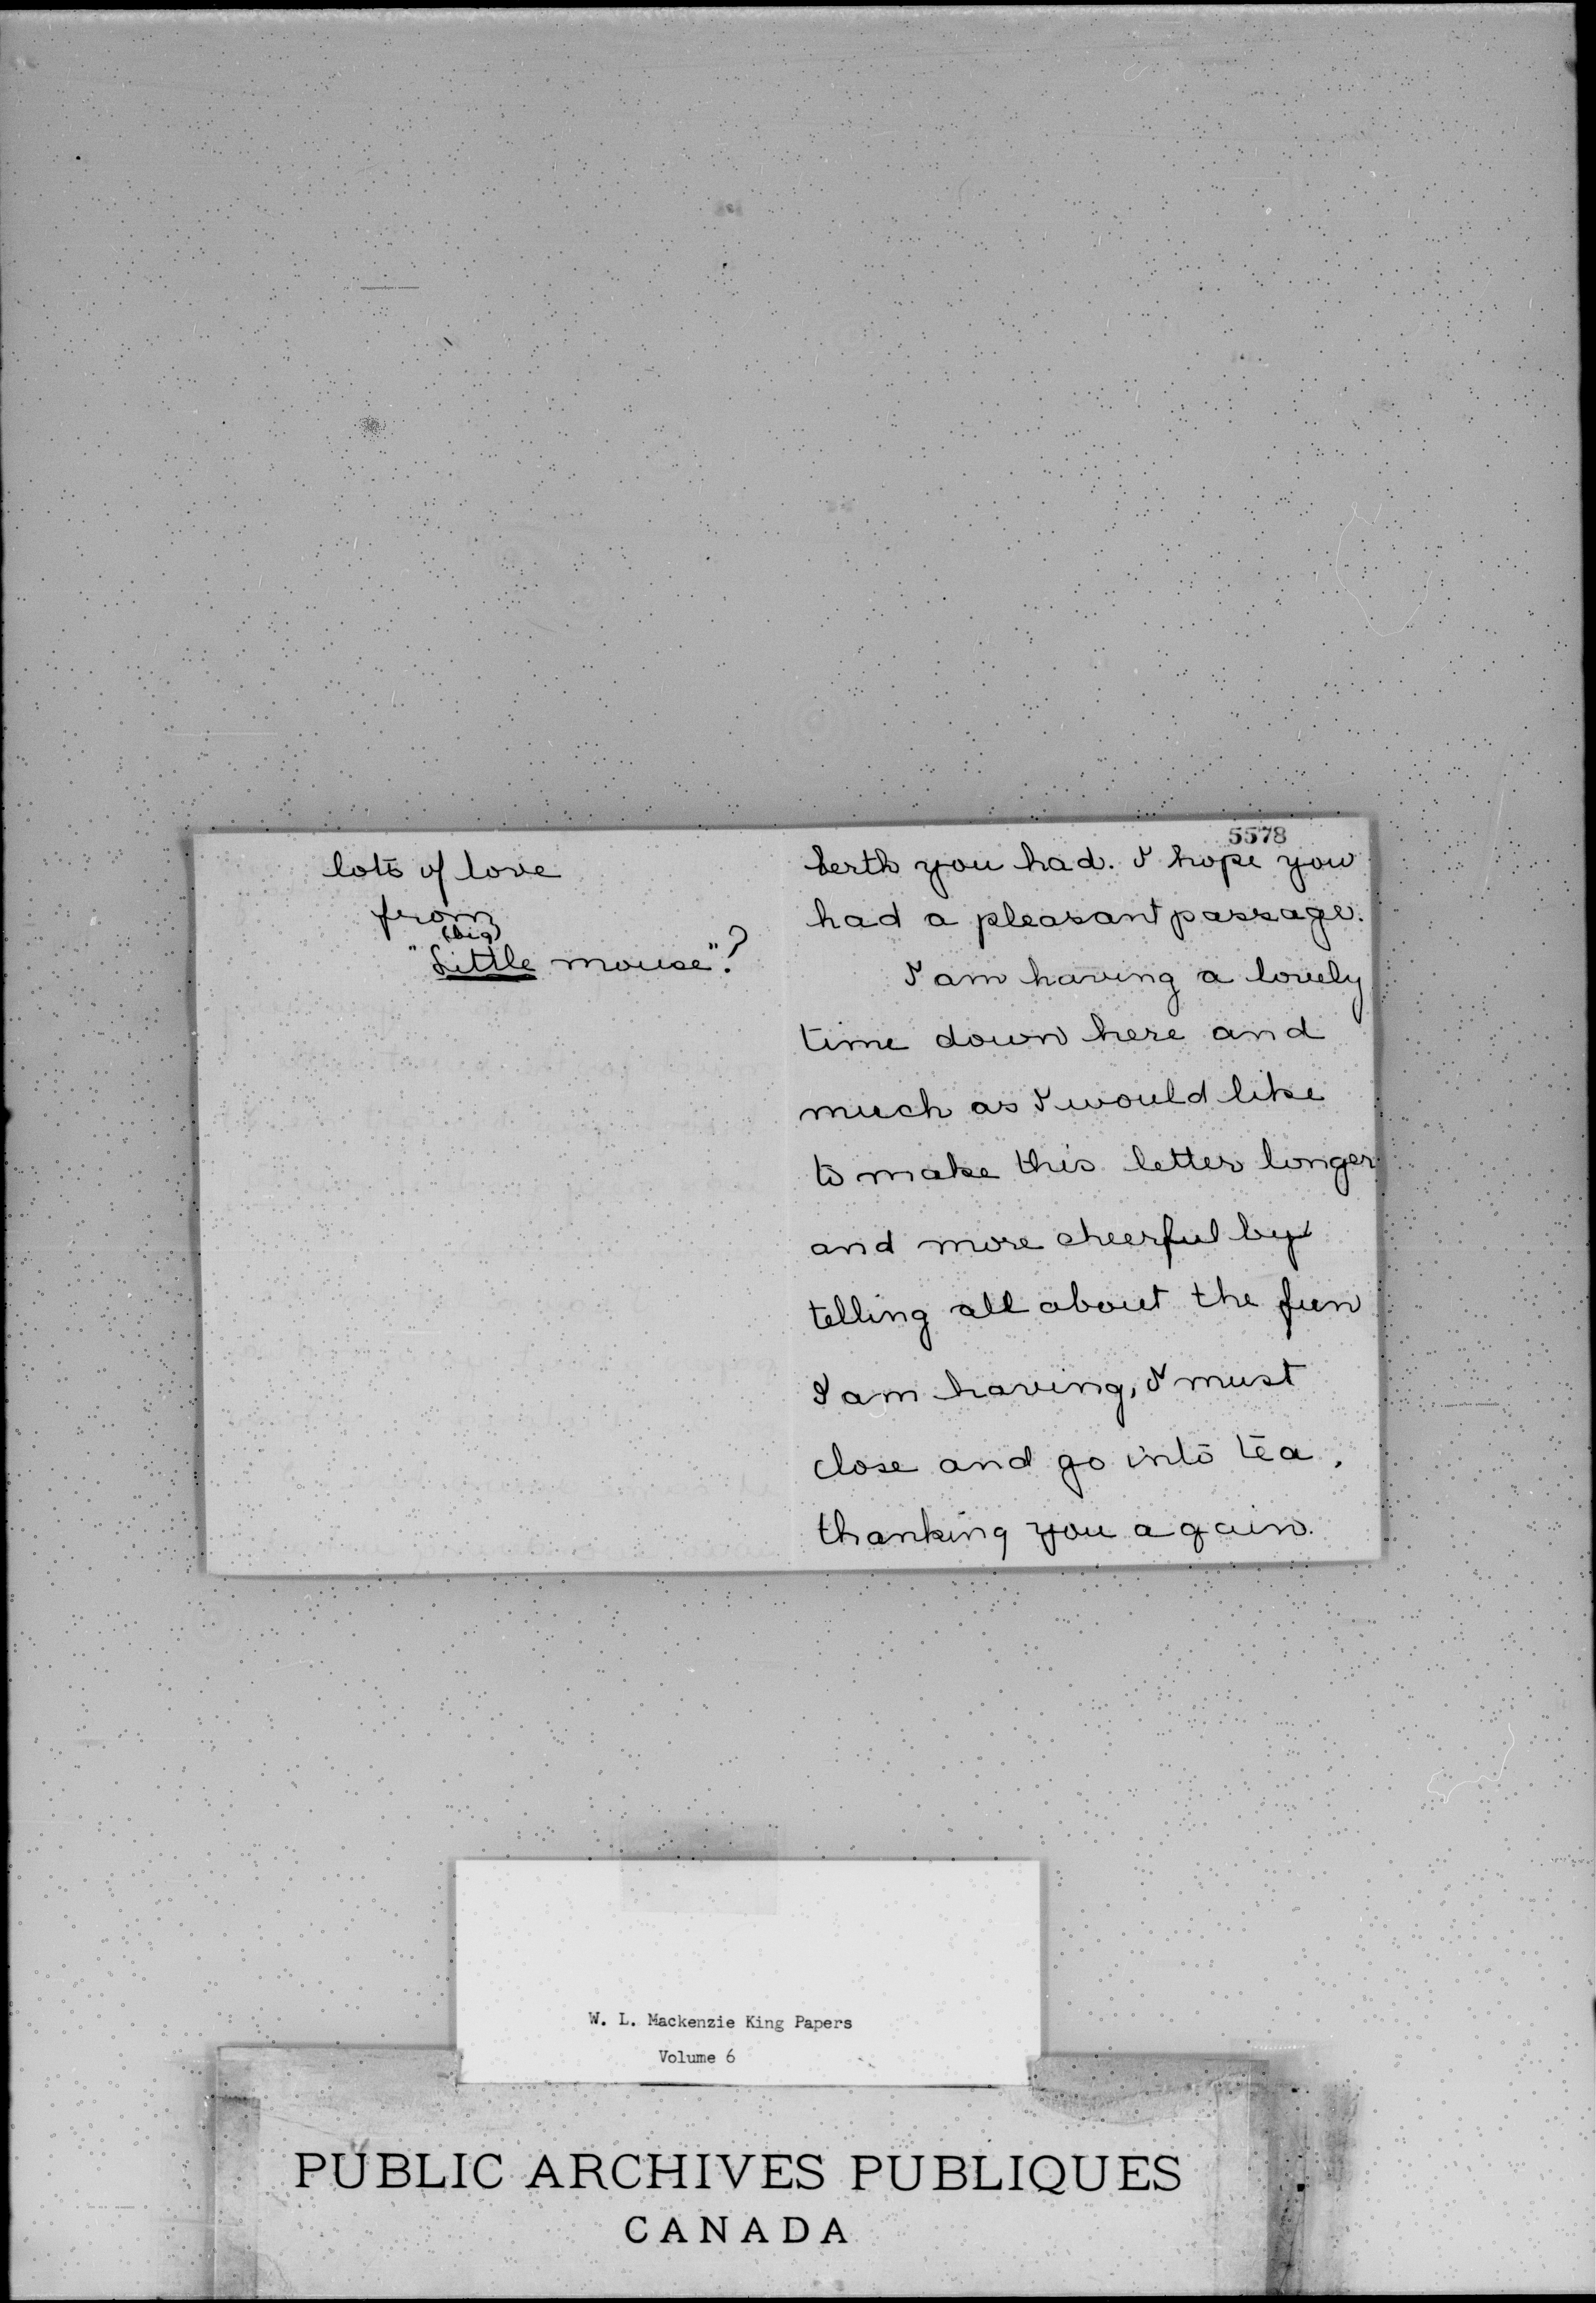 5578
berth you had. I hope you
had a pleasant passage.
I am having a lovely
time down here and
much as I would like
to make this letter longer
and more cheerful by
telling all about the fun
I am having, I must
close and go into tea,
thanking you again.
lots of love
from
(big)
"Little mouse"?
W. L. Mackenzie King Papers
Volume 6
PUBLIC ARCHIVES PUBLIQUES
CANADA